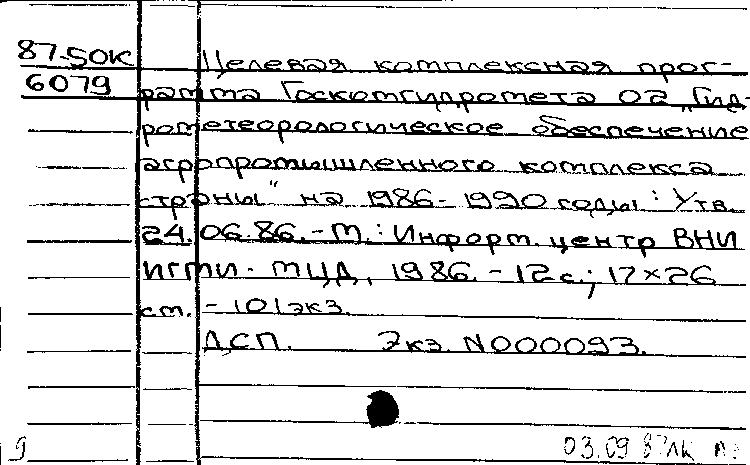 87-50К Целевая комплексная прог-
6079 рамма Госкомгидромета 02 „Гид-
рометеорологическое обеспечение
агропромышленного комплекса
страны" на 1986-1990 годы: Утв.
24.06.86. - М.: Информ. центр ВНИ
ИГМИ - МЦД, 1986. - 12 с.; 17×26
см. - 101 экз.
ДСП. Экз. N000093.
9 03.09